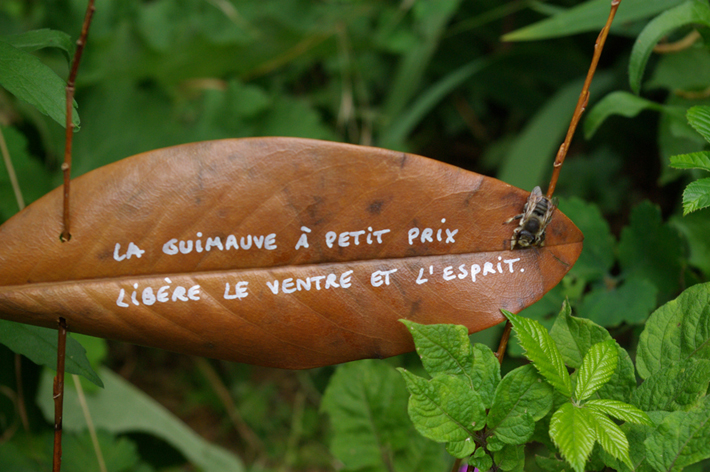 LA GUIMAUVE À PETIT PRIX
LIBÈRE LE VENTRE ET L'ESPRIT.